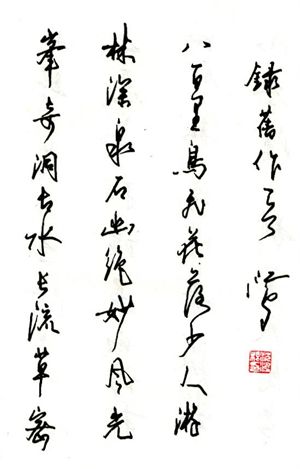 峯奇洞古水長流草密
林深泉石幽絕妙風光
八百里鳥飛花落少人游
錄舊作一首